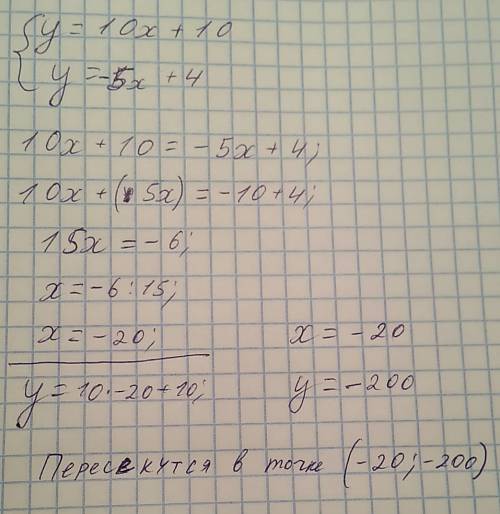 y = 10x + 10
y = -5x + 4
10x + 10 = -5x + 4;
10x + (5x) = -10 + 4;
15x = -6;
x = -6 : 15;
x = -20; x = -20
y = 10 · -20 + 10; y = -200
Пересекутся в точке (-20; -200)